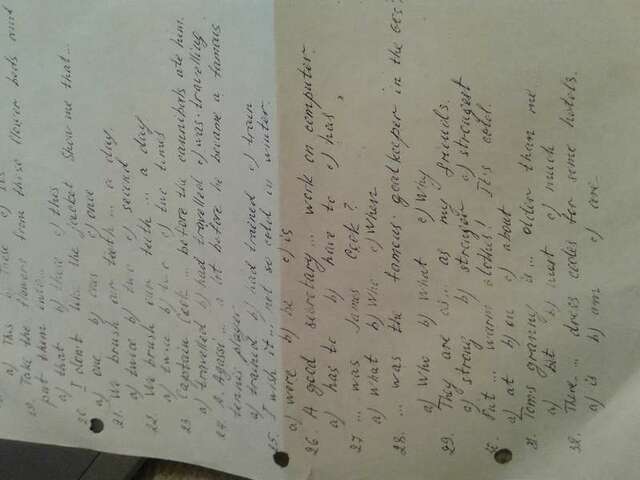 a) This b) These c) Its
19. Take the flowers from these flower beds and
put them into...
a) that b) these c) this
20. I don't like the jacket. Show me that...
a) one b) ones c) once
21. We brush our teeth... a day
a) twice b) two c) second
22. We brush our teeth ... a day
a) twice b) two c) two times
23. Captain Cook ... before the cannibals ate him.
a) travelled b) had travelled c) was travelling
24. A. Agassi ... a lot before he became a famous
tennis player.
a) trained b) had trained c) train
25. I wish it ... not so cold in winter.
a) were b) be c) is
26. A good secretary ... work on computer.
a) has to b) have to c) has
27. ... was James Cook?
a) what b) Who c) When
28. ... was the famous goalkeeper in the
a) Who b) What c) Why
29. They are as... as my friends.
a) strong b) stronger c) strongest
30. Put ... warm clothes! It's cold.
a) at b) on c) about
31. Toms granny is ... older than me
a) bit b) c) much
32. There ... dress codes for some hotels.
a) is b) am c) are